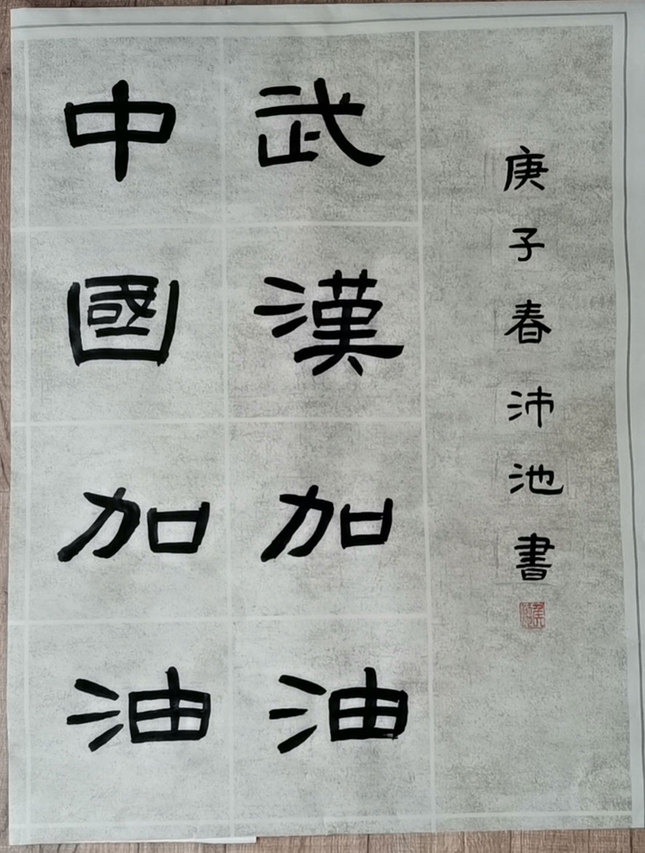 中國加油
武漢加油
庚子春沛池書